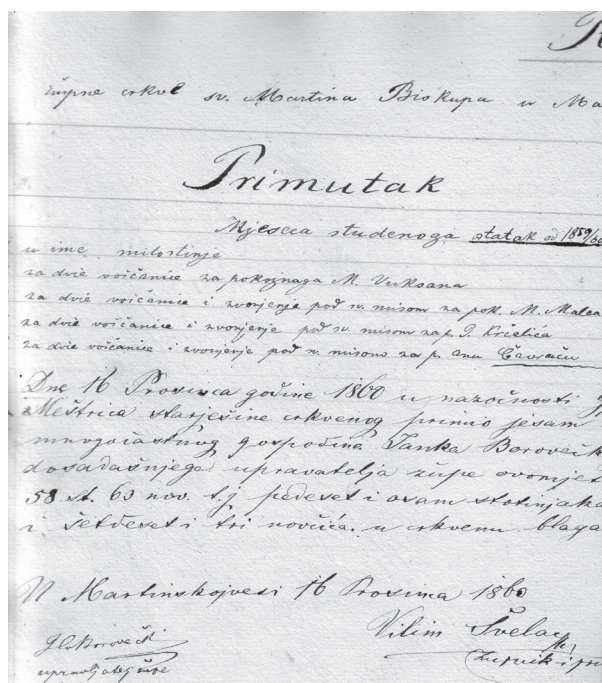 župne crkve sv. Martina Biskupa u Ma
Primutak
Mjeseca studenoga ostatak od 1859/60
u ime milostinje
za dvie voščanice za pokojnaga M. Vuksana
za dvie voščanice i zvonjenje pod sv. misom za pok. M. Malea
za dvie voščanice i zvonjenje pod sv. misom za p. J. Krčelića
za dvie voščanice i zvonjenje pod sv. misom za p. anu
Dne 16 Prosinca godine 1860 u nazočnosti
Meštrica starješine crkvenog primio jesam
mnogočastnog gospodina Janka Boroveck
dosadašnjega upravatelja župe ovomjest
58 st. 63 nov. t.j. pedeset i osam stotinjaka
i šetdeset i tri novčića u crkvenu blaga
U Martinskojvesi 16 Prosinca 1860
Vilim Švelac
Borovečki
župnik i pr
upravljatelj župe